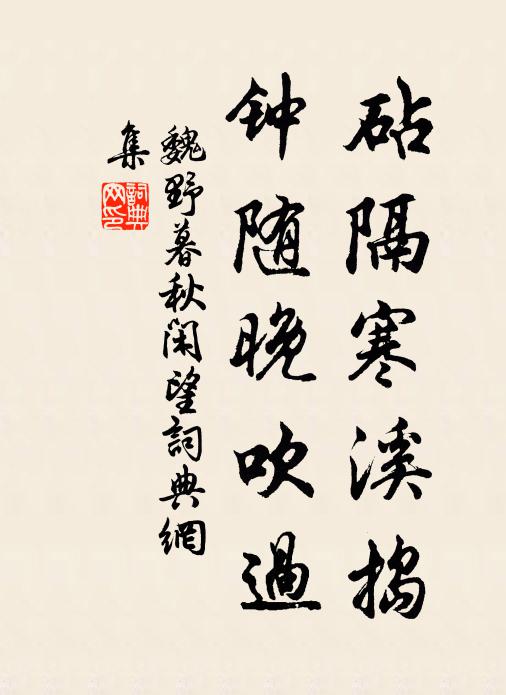 砧隔寒溪捣
钟随晚吹過
魏野暮秋闲望詞典網
集
詞典
网印